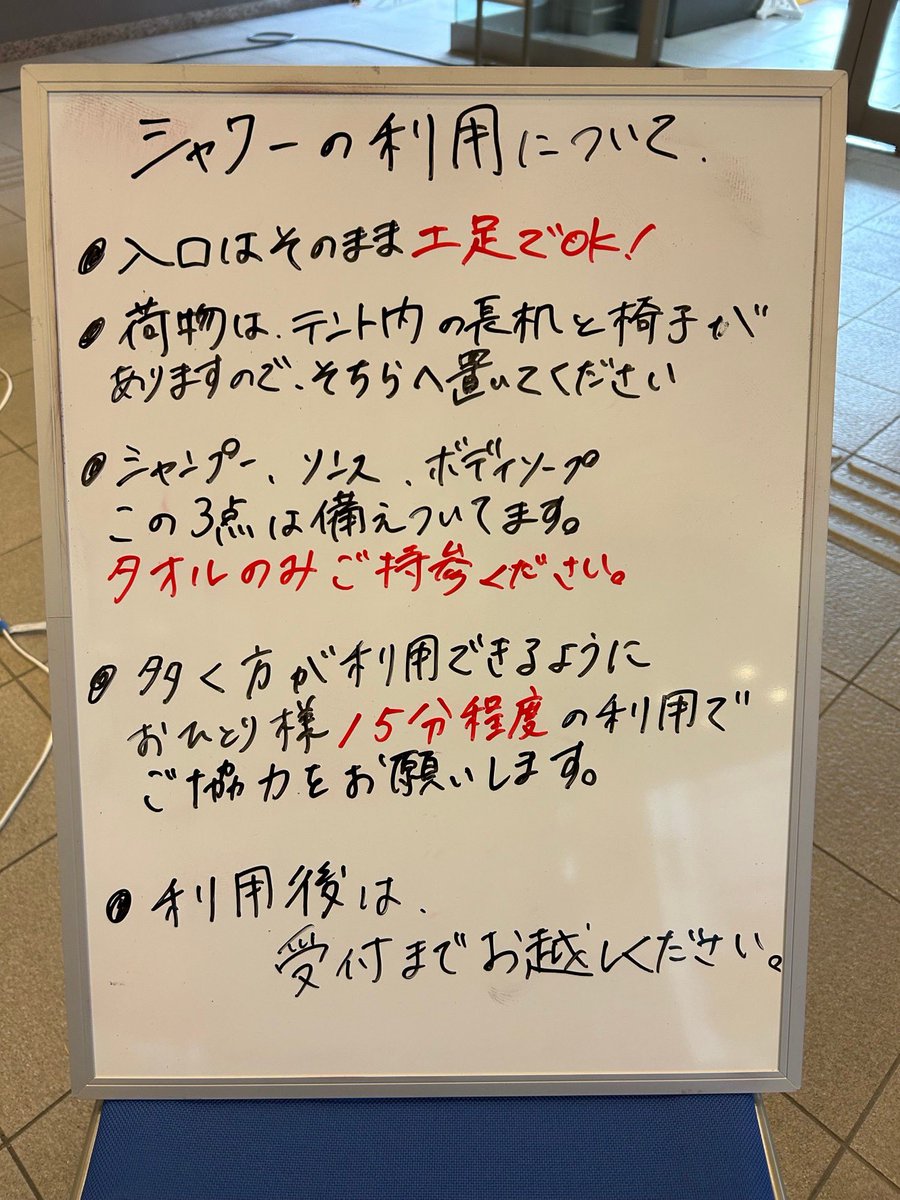 シャワーの利用について.
● 入口はそのまま土足でOK!
● 荷物は、テント内の長机と椅子が
ありますので、そちらへ置いてください
● シャンプー、リンス、ボディソープ
この3点は備えついてます。
タオルのみご持参ください。
● 多く方が利用できるように
おひとり様15分程度の利用で
ご協力をお願いします。
● 利用後は、
受付までお越しください。